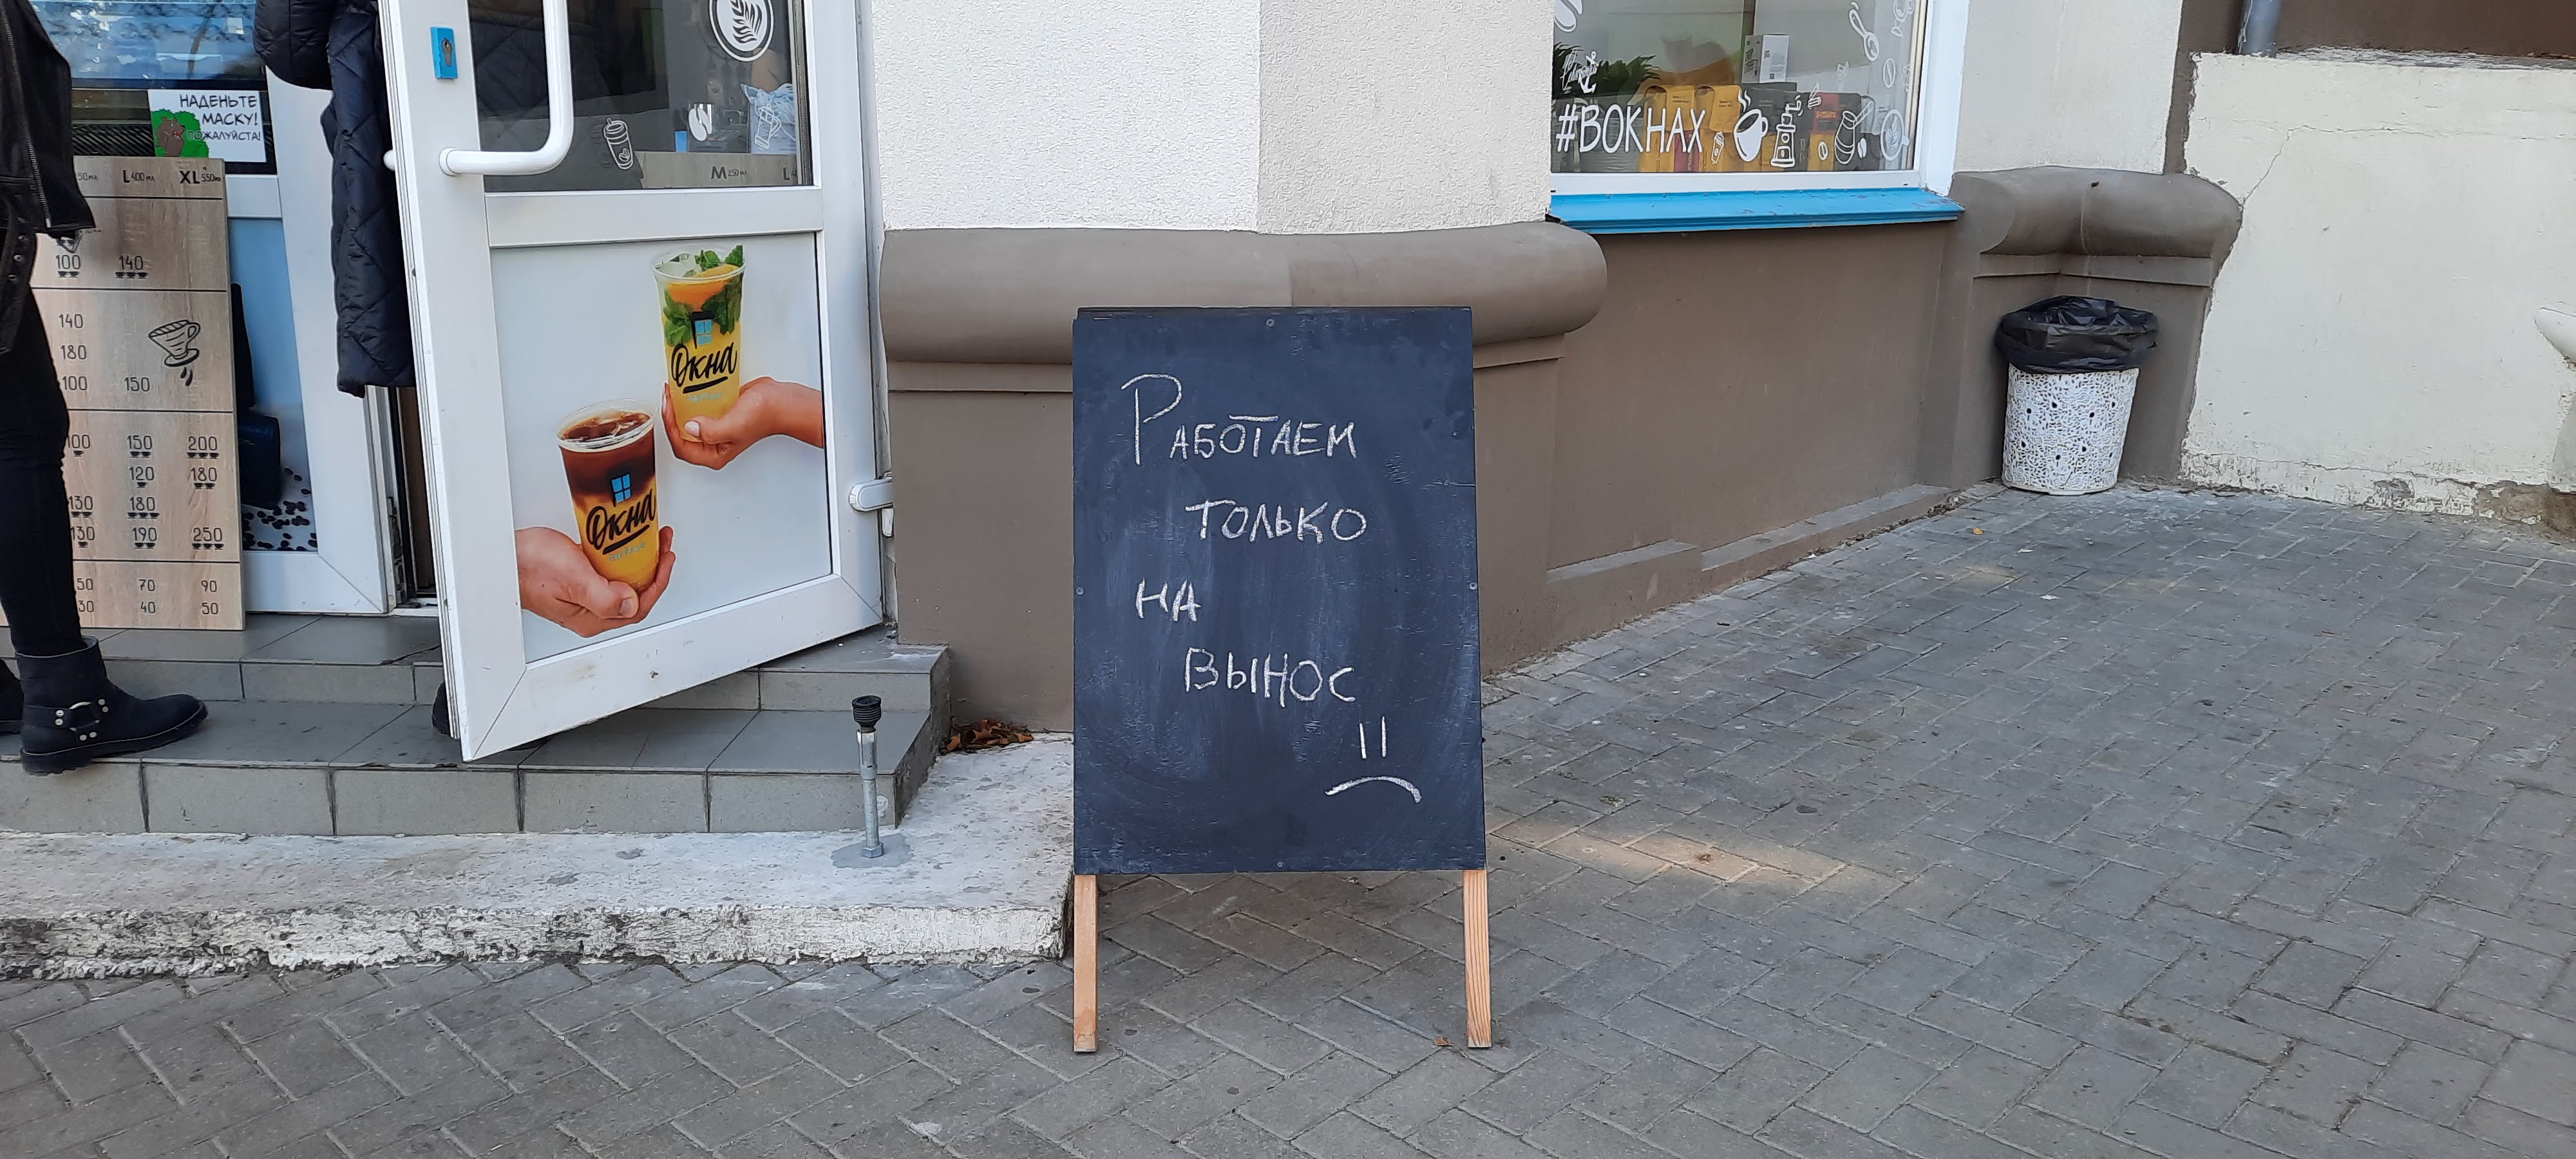 НАДЕНЬТЕ
МАСКУ!
ПОЖАЛУЙСТА!
L 400 мл XL 550мл
100 140
140
180
100 150
100 150 200
120 180
130 180
130 190 250
50 70 90
30 40 50
M 250 мл L
Окна
Окна
#ВОКНАХ
РАБОТАЕМ
ТОЛЬКО
НА
ВЫНОС